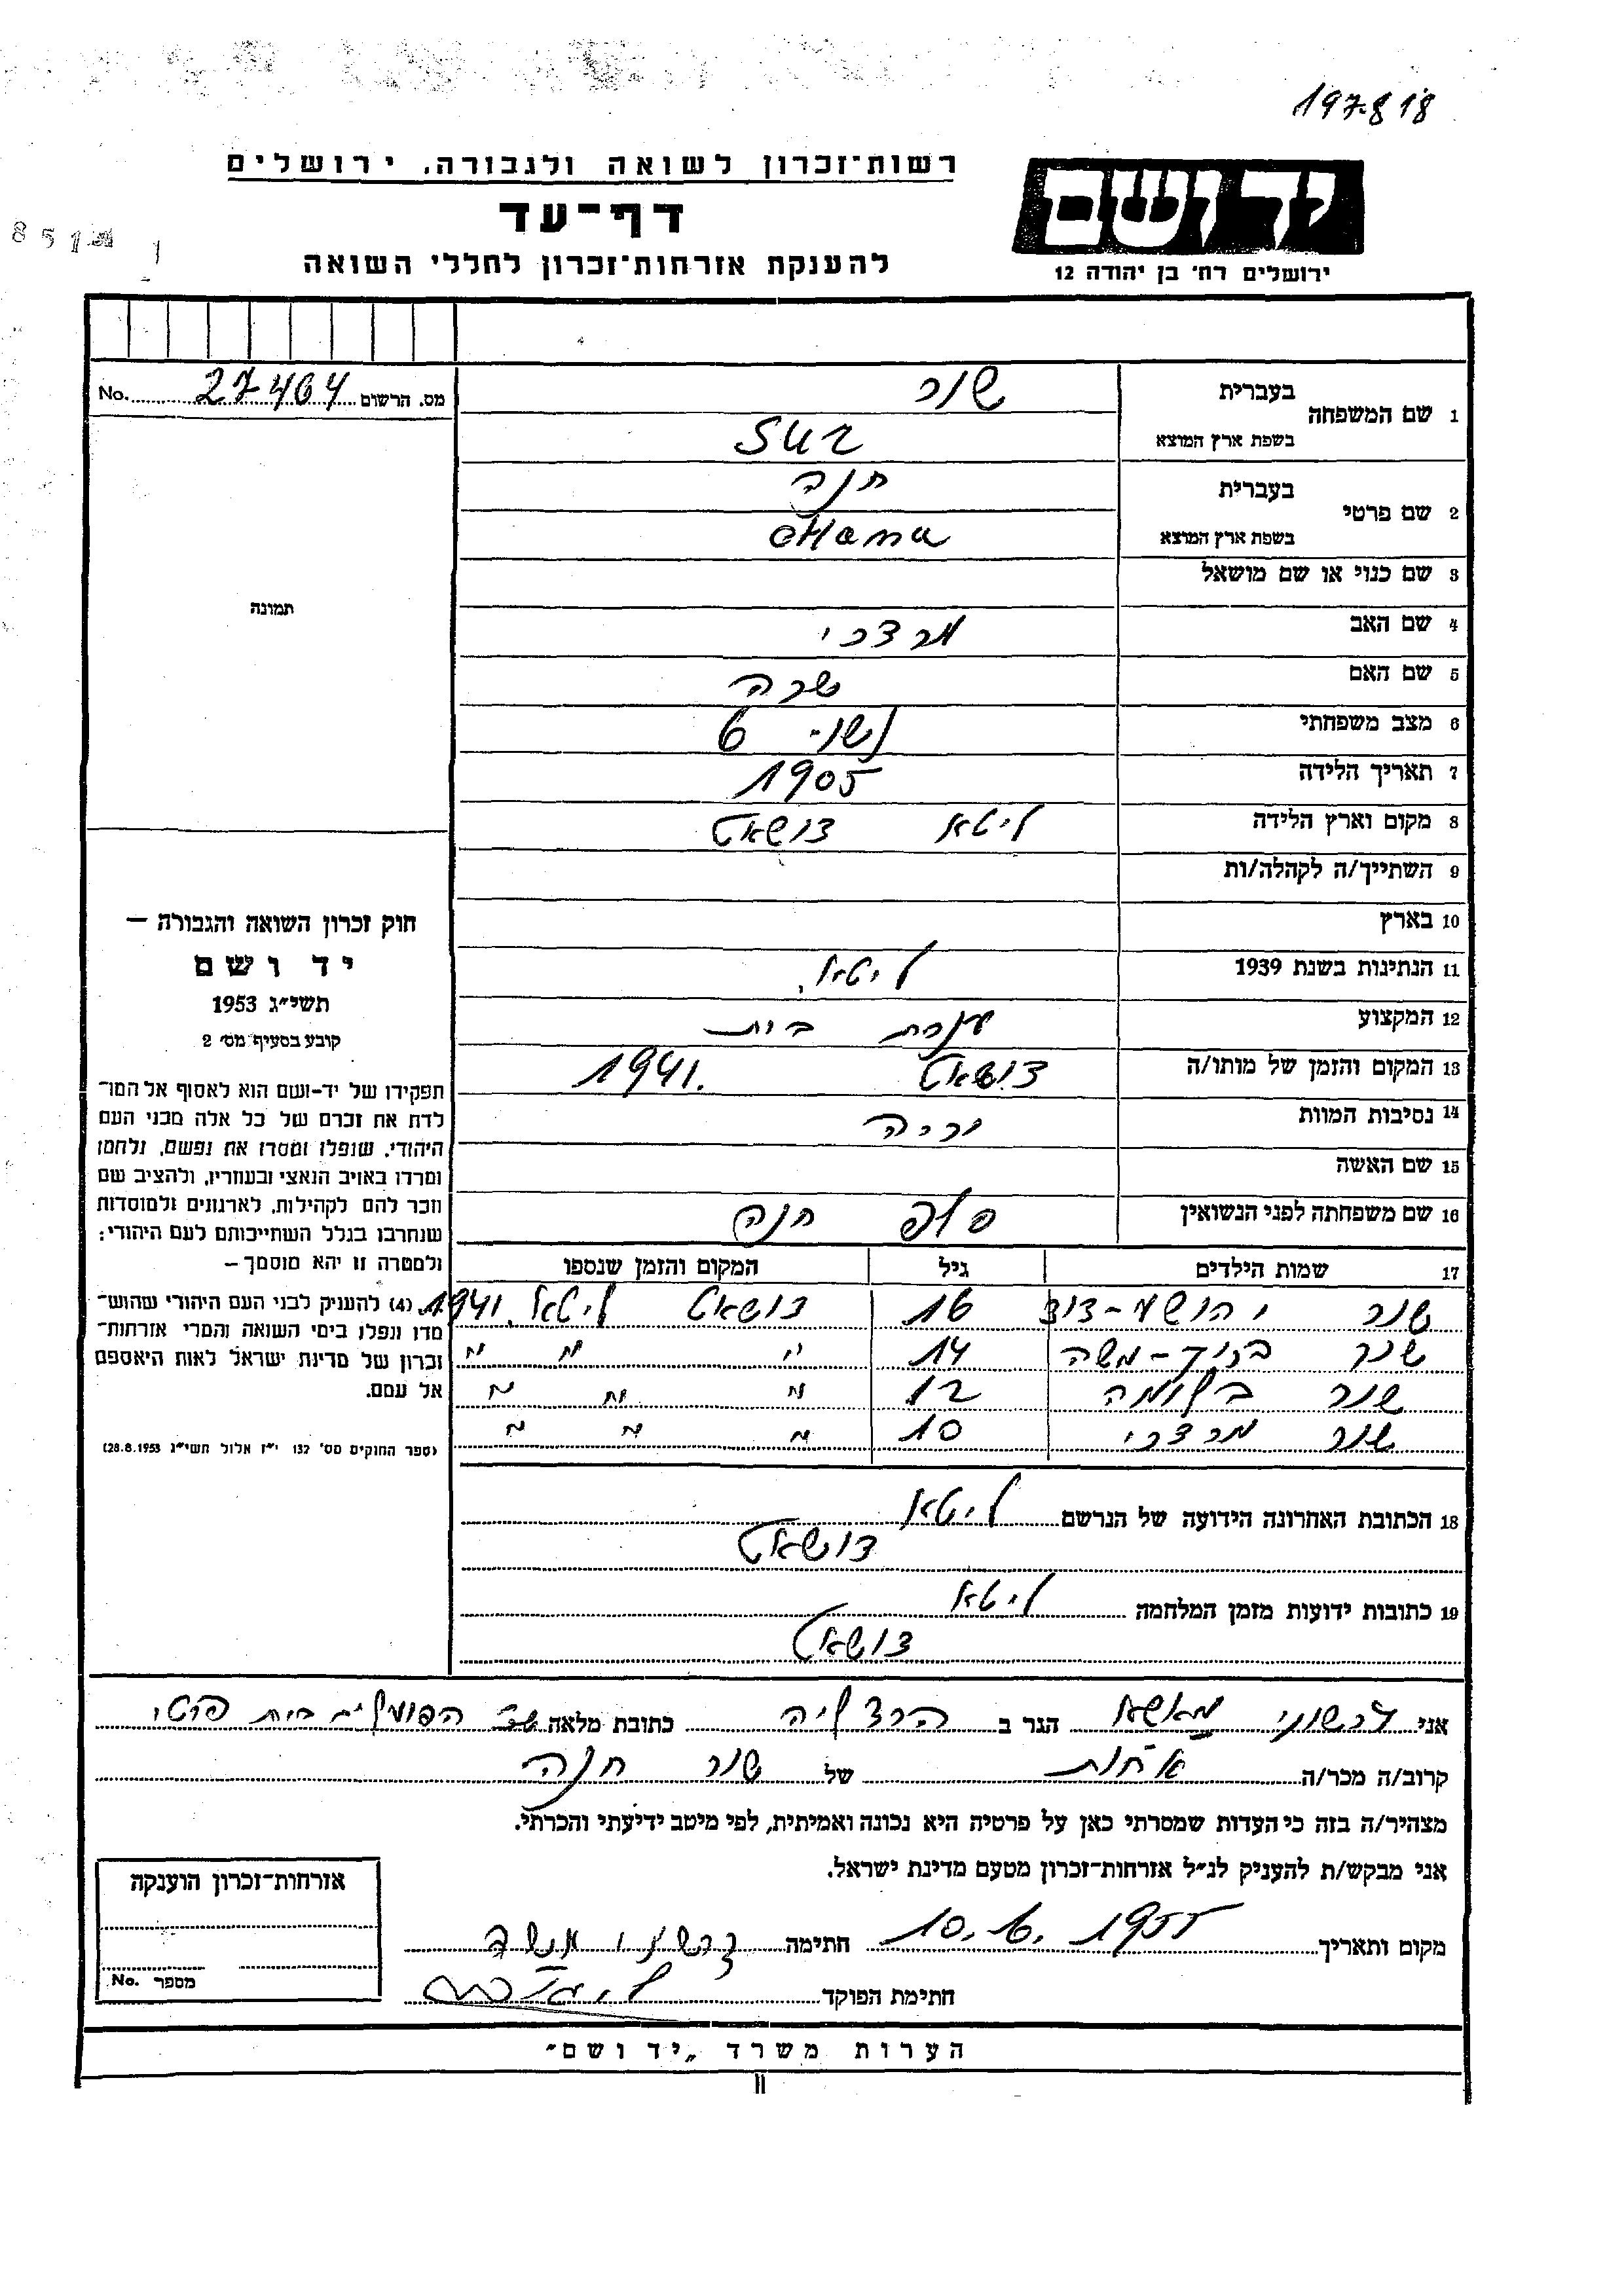 197818
רשות־זכרון לשואה ולגבורה, ירושלים
דף־עד
להענקת אזרחות־זכרון לחללי השואה
יד ושם
ירושלים רח׳ בן יהודה 12
מס. הרשום 27464 No.
1 שם המשפחה בעברית שור
בשפת ארץ המוצא Sur
2 שם פרטי בעברית חנה
בשפת ארץ המוצא Hana
3 שם כנוי או שם מושאל
4 שם האב מרדכי
5 שם האם שרה
6 מצב משפחתי 6
7 תאריך הלידה 1905
8 מקום וארץ הלידה ליטא דושאט
9 השתייך/ה לקהלה/ות
10 בארץ
11 הנתינות בשנת 1939 ליטא.
12 המקצוע עקרת בית
13 המקום והזמן של מותו/ה דושאט 1941.
14 נסיבות המוות יריה
15 שם האשה
16 שם משפחתה לפני הנשואין חנה
17 שמות הילדים גיל המקום והזמן שנספו
שור 16 דושאט ליטא. 1941
שור ברוך-משה 14 " " "
שור בלומה 12 " " "
שור מרדכי 10 " " "
18 הכתובת האחרונה הידועה של הנרשם ליטא
דושאט
19 כתובות ידועות מזמן המלחמה ליטא
דושאט
תמונה
חוק זכרון השואה והגבורה –
יד ושם
תשי״ג 1953
קובע בסעיף מס׳ 2
תפקידו של יד-ושם הוא לאסוף אל המו־
לדת את זכרם של כל אלה מבני העם
היהודי, שנפלו ומסרו את נפשם, נלחמו
ומרדו באויב הנאצי ובעוזריו, ולהציב שם
וזכר להם לקהילות, לארגונים ולמוסדות
שנחרבו בגלל השתייכותם לעם היהודי;
ולמטרה זו יהא מוסמך –
(4) להעניק לבני העם היהודי שהוש־
מדו ונפלו בימי השואה והמרי אזרחות־
זכרון של מדינת ישראל לאות היאספם
אל עמם.
(ספר החוקים מס׳ 132 י״ז אלול תשי״ג 28.8.1953)
אני מאשא הגר ב הרצליה כתובת מלאה בית פרטי
קרוב/ה מכר/ה אחות של שור חנה
מצהיר/ה בזה כי העדות שמסרתי כאן על פרטיה היא נכונה ואמיתית, לפי מיטב ידיעתי והכרתי.
אני מבקש/ת להעניק לנ״ל אזרחות-זכרון מטעם מדינת ישראל.
מקום ותאריך 10.6.1955 חתימה
חתימת הפוקד
אזרחות־זכרון הוענקה
מספר No.
הערות משרד „יד ושם״
II